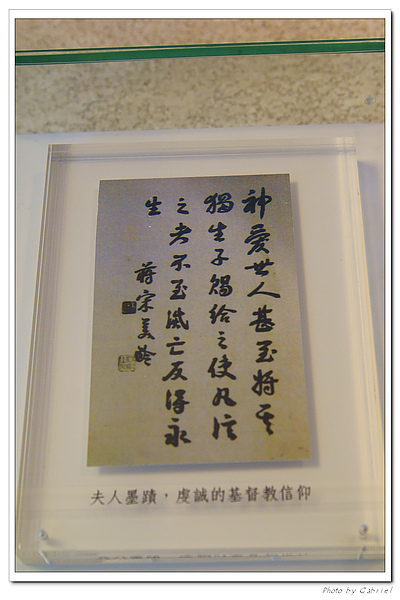 神愛世人甚至將其
獨生子賜給之使凡信
之者不至滅亡反得永
生
蔣宋美齡
夫人墨蹟，虔誠的基督教信仰
Photo by Gabriel